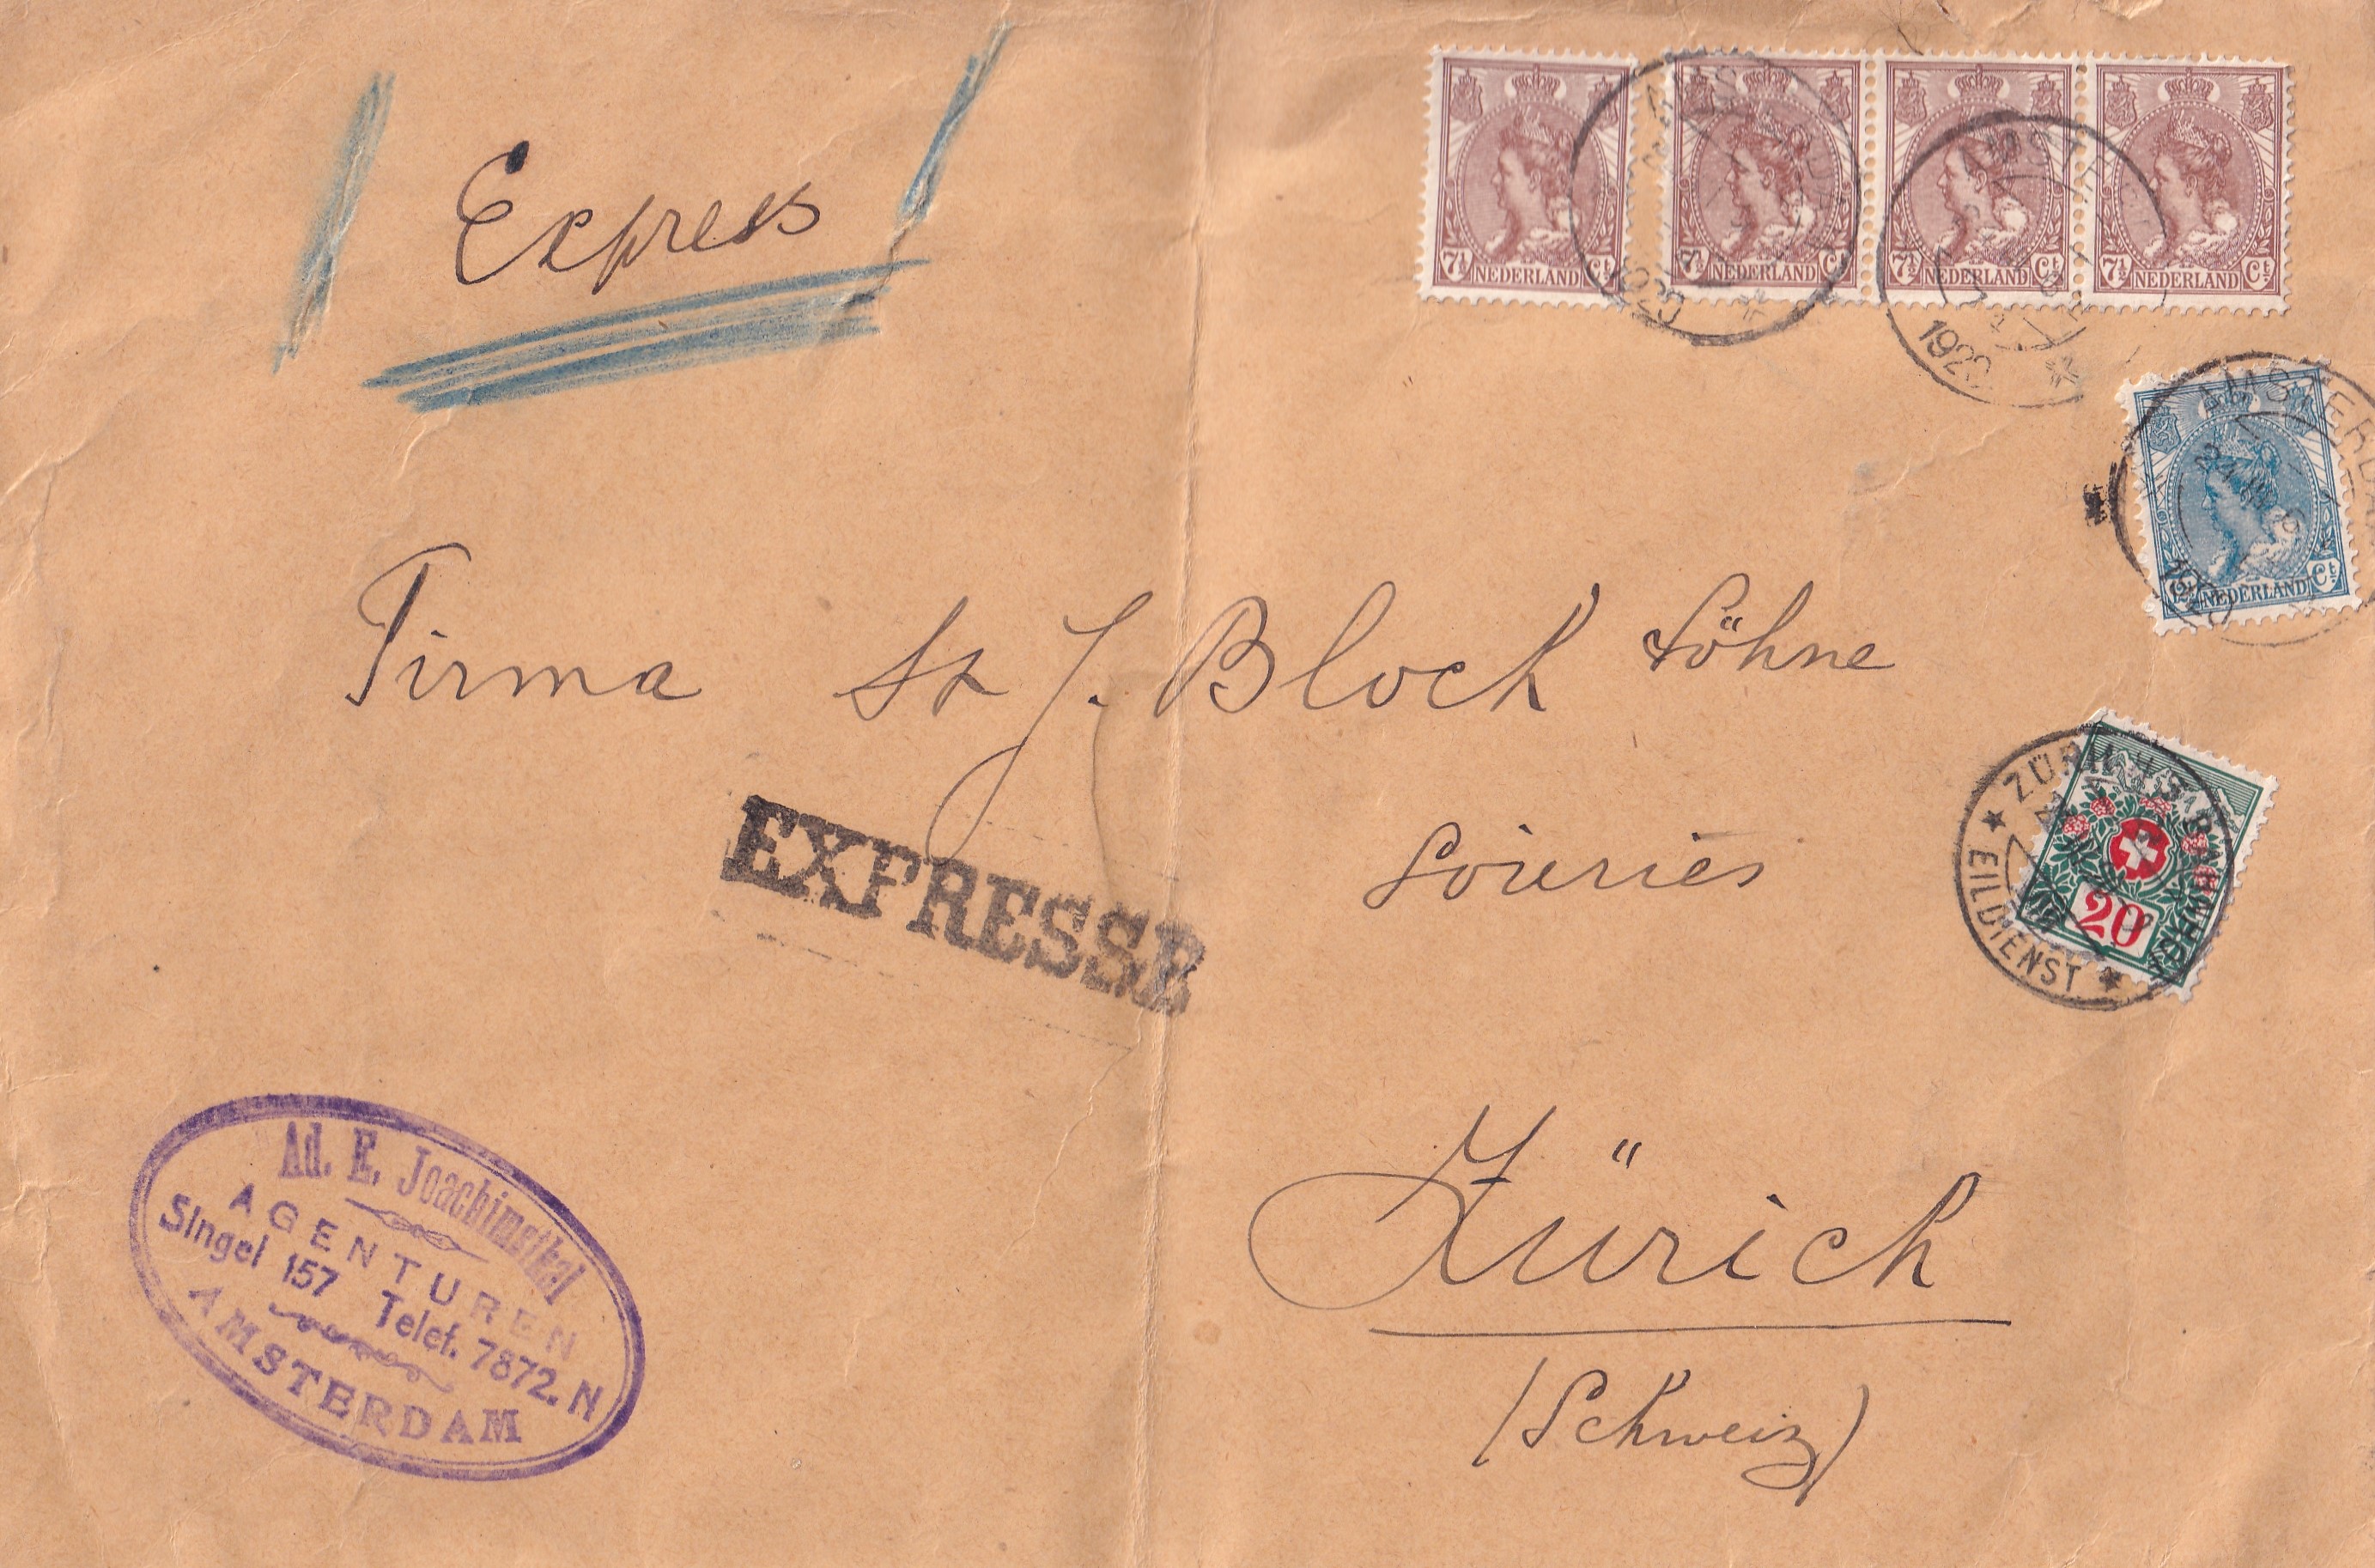 Express
7½ NEDERLAND Ct
7½ NEDERLAND Ct
7½ NEDERLAND Ct
7½ NEDERLAND Ct
1920
1920
AMSTERD
12½ NEDERLAND Ct
Firma J. Block Söhne
EXPRESSE
Soieries
ZÜRICH
EILDIENST
20
Zürich
(Schweiz)
Ad. E. Joachimsthal
AGENTUREN
Singel 157 Telef. 7872. N
AMSTERDAM